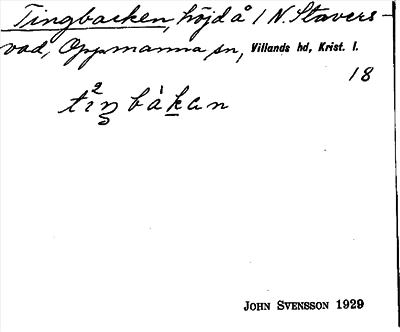 Tingbacken, höjd å 1 N. Stavers-
vad, Oppmanna sn, Villands hd, Krist. l.
18
ti²ŋ bàkan
JOHN SVENSSON 1929